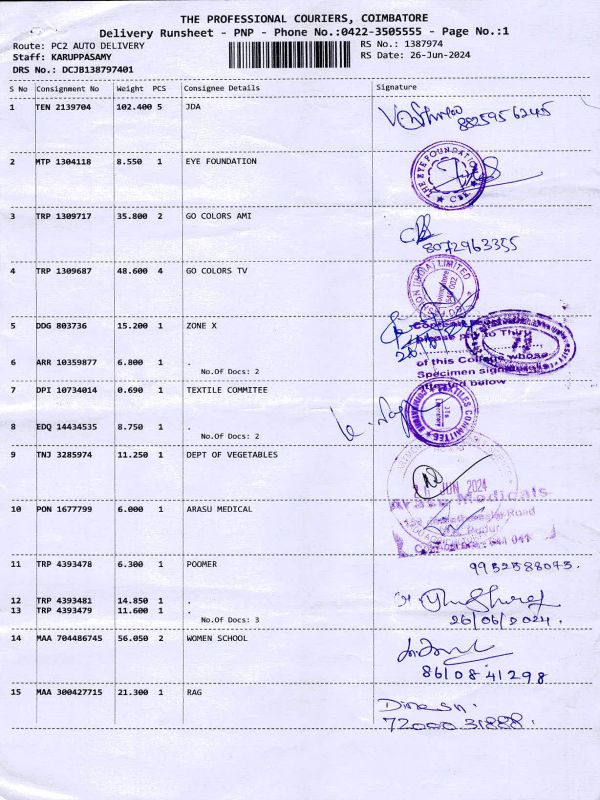 THE PROFESSIONAL COURIERS, COIMBATORE
Delivery Runsheet - PNP - Phone No.:0422-3505555 - Page No.:1
Route: PC2 AUTO DELIVERY RS No.: 1387974
Staff: KARUPPASAMY RS Date: 26-Jun-2024
DRS No.: DCJB138797401
S No Consignment No Weight PCS Consignee Details Signature
1 TEN 2139704 102.400 5 JDA
8825956245
2 MTP 1304118 8.550 1 EYE FOUNDATION
THE EYE FOUNDATION CBE
3 TRP 1309717 35.800 2 GO COLORS AMI
8072963355
4 TRP 1309687 48.600 4 GO COLORS TV
(INDIA) LIMITED
5 DDG 803736 15.200 1 ZONE X
please pay to Thru
6 ARR 10359877 6.800 1 .
of this College whose
No.Of Docs: 2
Specimen
7 DPI 10734014 0.690 1 TEXTILE COMMITEE
attested below
TEXTILES COMMITTEE
8 EDQ 14434535 8.750 1 .
No.Of Docs: 2
9 TNJ 3285974 11.250 1 DEPT OF VEGETABLES
JUN 2024
Arasu Medicals
10 PON 1677799 6.000 1 ARASU MEDICAL
Road
11 TRP 4393478 6.300 1 POOMER
9952588075.
12 TRP 4393481 14.850 1 .
13 TRP 4393479 11.600 1 .
No.Of Docs: 3
26/06/2024.
14 MAA 704486745 56.050 2 WOMEN SCHOOL
8610841298
15 MAA 300427715 21.300 1 RAG
Dinesh.
7200031888.